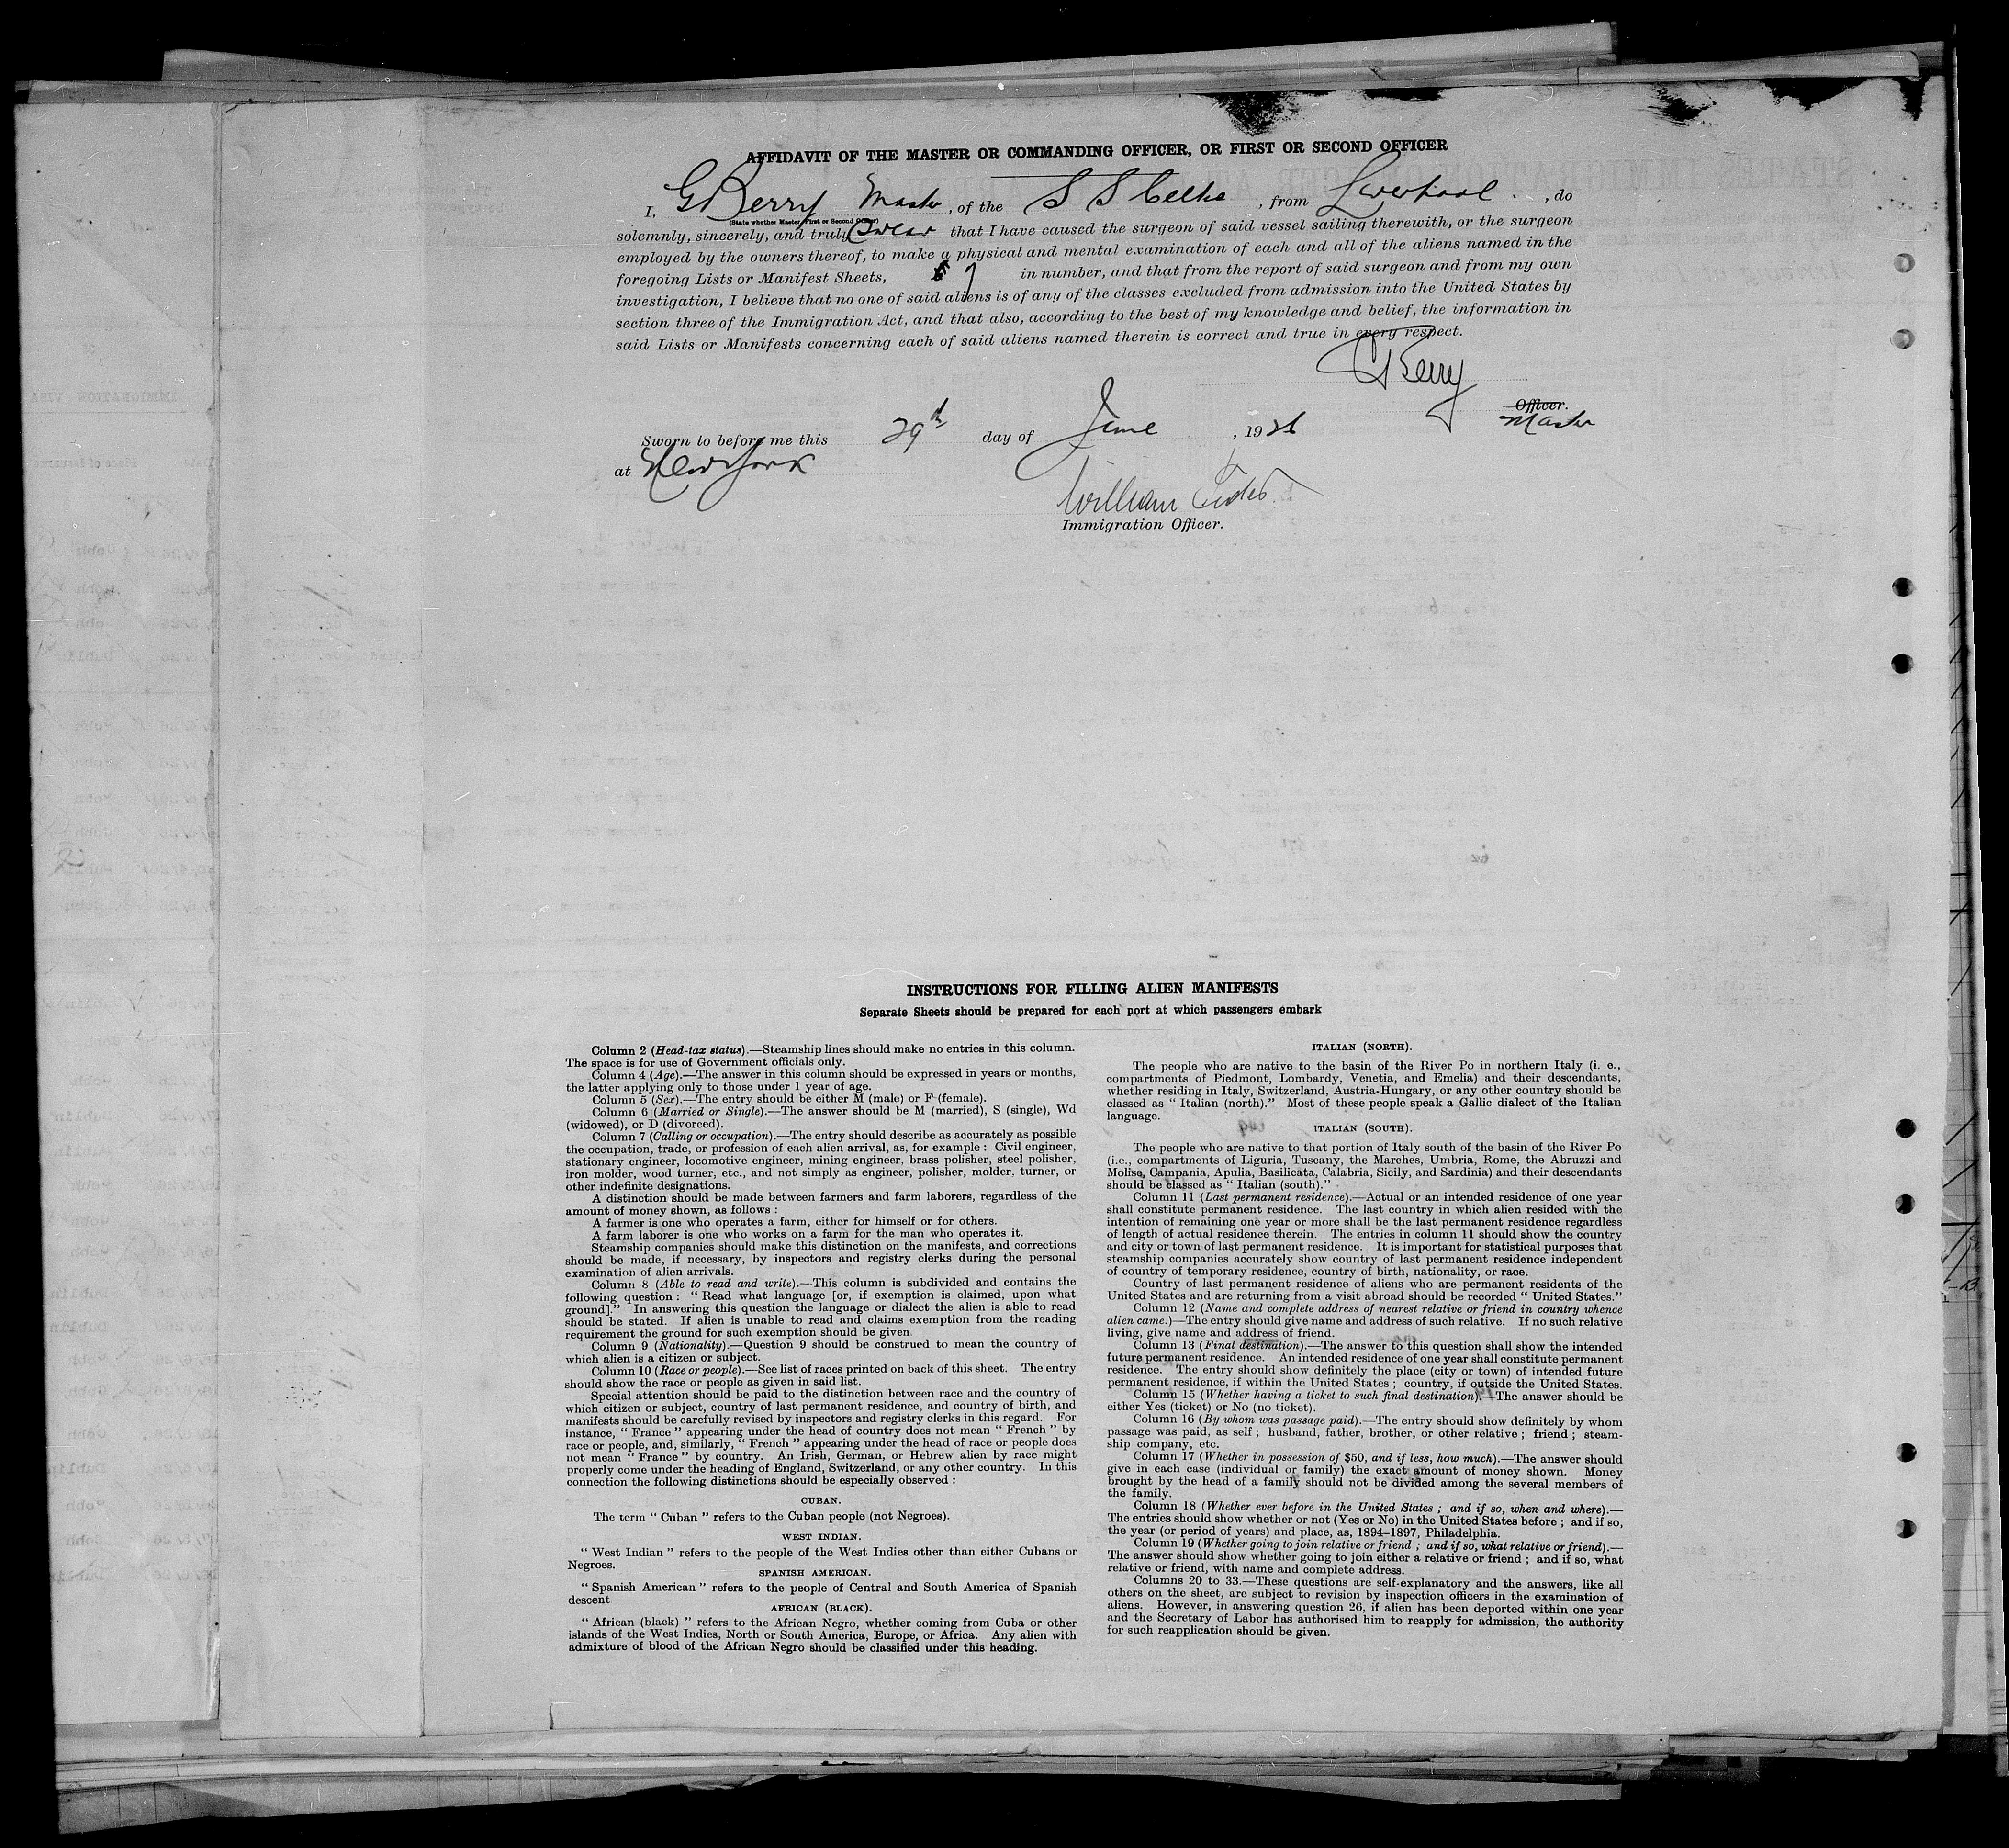 AFFIDAVIT OF THE MASTER OR COMMANDING OFFICER, OR FIRST OR SECOND OFFICER
I, G Berry Master, of the S S Celtic, from Liverpool, do
(State whether Master, First or Second Officer)
solemnly, sincerely, and truly swear that I have caused the surgeon of said vessel sailing therewith, or the surgeon
employed by the owners thereof, to make a physical and mental examination of each and all of the aliens named in the
foregoing Lists or Manifest Sheets, 7 in number, and that from the report of said surgeon and from my own
investigation, I believe that no one of said aliens is of any of the classes excluded from admission into the United States by
section three of the Immigration Act, and that also, according to the best of my knowledge and belief, the information in
said Lists or Manifests concerning each of said aliens named therein is correct and true in every respect.
G Berry
Officer.
Master
Sworn to before me this 29th day of June, 1926
at New York
William
Immigration Officer.
INSTRUCTIONS FOR FILLING ALIEN MANIFESTS
Separate Sheets should be prepared for each port at which passengers embark
Column 2 (Head-tax status).—Steamship lines should make no entries in this column.
The space is for use of Government officials only.
Column 4 (Age).—The answer in this column should be expressed in years or months,
the latter applying only to those under 1 year of age.
Column 5 (Sex).—The entry should be either M (male) or F (female).
Column 6 (Married or Single).—The answer should be M (married), S (single), Wd
(widowed), or D (divorced).
Column 7 (Calling or occupation).—The entry should describe as accurately as possible
the occupation, trade, or profession of each alien arrival, as, for example : Civil engineer,
stationary engineer, locomotive engineer, mining engineer, brass polisher, steel polisher,
iron molder, wood turner, etc., and not simply as engineer, polisher, molder, turner, or
other indefinite designations.
A distinction should be made between farmers and farm laborers, regardless of the
amount of money shown, as follows :
A farmer is one who operates a farm, either for himself or for others.
A farm laborer is one who works on a farm for the man who operates it.
Steamship companies should make this distinction on the manifests, and corrections
should be made, if necessary, by inspectors and registry clerks during the personal
examination of alien arrivals.
Column 8 (Able to read and write).—This column is subdivided and contains the
following question : " Read what language [or, if exemption is claimed, upon what
ground]." In answering this question the language or dialect the alien is able to read
should be stated. If alien is unable to read and claims exemption from the reading
requirement the ground for such exemption should be given.
Column 9 (Nationality).—Question 9 should be construed to mean the country of
which alien is a citizen or subject.
Column 10 (Race or people).—See list of races printed on back of this sheet. The entry
should show the race or people as given in said list.
Special attention should be paid to the distinction between race and the country of
which citizen or subject, country of last permanent residence, and country of birth, and
manifests should be carefully revised by inspectors and registry clerks in this regard. For
instance, " France " appearing under the head of country does not mean " French " by
race or people, and, similarly, " French " appearing under the head of race or people does
not mean " France " by country. An Irish, German, or Hebrew alien by race might
properly come under the heading of England, Switzerland, or any other country. In this
connection the following distinctions should be especially observed :
CUBAN.
The term " Cuban " refers to the Cuban people (not Negroes).
WEST INDIAN.
" West Indian " refers to the people of the West Indies other than either Cubans or
Negroes.
SPANISH AMERICAN.
" Spanish American " refers to the people of Central and South America of Spanish
descent
AFRICAN (BLACK).
" African (black) " refers to the African Negro, whether coming from Cuba or other
islands of the West Indies, North or South America, Europe, or Africa. Any alien with
admixture of blood of the African Negro should be classified under this heading.
ITALIAN (NORTH).
The people who are native to the basin of the River Po in northern Italy (i. e.,
compartments of Piedmont, Lombardy, Venetia, and Emelia) and their descendants,
whether residing in Italy, Switzerland, Austria-Hungary, or any other country should be
classed as " Italian (north)." Most of these people speak a Gallic dialect of the Italian
language.
ITALIAN (SOUTH).
The people who are native to that portion of Italy south of the basin of the River Po
(i.e., compartments of Liguria, Tuscany, the Marches, Umbria, Rome, the Abruzzi and
Molise, Campania, Apulia, Basilicata, Calabria, Sicily, and Sardinia) and their descendants
should be classed as " Italian (south)."
Column 11 (Last permanent residence).—Actual or an intended residence of one year
shall constitute permanent residence. The last country in which alien resided with the
intention of remaining one year or more shall be the last permanent residence regardless
of length of actual residence therein. The entries in column 11 should show the country
and city or town of last permanent residence. It is important for statistical purposes that
steamship companies accurately show country of last permanent residence independent
of country of temporary residence, country of birth, nationality, or race.
Country of last permanent residence of aliens who are permanent residents of the
United States and are returning from a visit abroad should be recorded " United States."
Column 12 (Name and complete address of nearest relative or friend in country whence
alien came.)—The entry should give name and address of such relative. If no such relative
living, give name and address of friend.
Column 13 (Final destination).—The answer to this question shall show the intended
future permanent residence. An intended residence of one year shall constitute permanent
residence. The entry should show definitely the place (city or town) of intended future
permanent residence, if within the United States ; country, if outside the United States.
Column 15 (Whether having a ticket to such final destination).—The answer should be
either Yes (ticket) or No (no ticket).
Column 16 (By whom was passage paid).—The entry should show definitely by whom
passage was paid, as self ; husband, father, brother, or other relative ; friend ; steam-
ship company, etc.
Column 17 (Whether in possession of $50, and if less, how much).—The answer should
give in each case (individual or family) the exact amount of money shown. Money
brought by the head of a family should not be divided among the several members of
the family.
Column 18 (Whether ever before in the United States ; and if so, when and where).—
The entries should show whether or not (Yes or No) in the United States before ; and if so,
the year (or period of years) and place, as, 1894–1897, Philadelphia.
Column 19 (Whether going to join relative or friend ; and if so, what relative or friend).—
The answer should show whether going to join either a relative or friend ; and if so, what
relative or friend, with name and complete address.
Columns 20 to 33.—These questions are self-explanatory and the answers, like all
others on the sheet, are subject to revision by inspection officers in the examination of
aliens. However, in answering question 26, if alien has been deported within one year
and the Secretary of Labor has authorised him to reapply for admission, the authority
for such reapplication should be given.